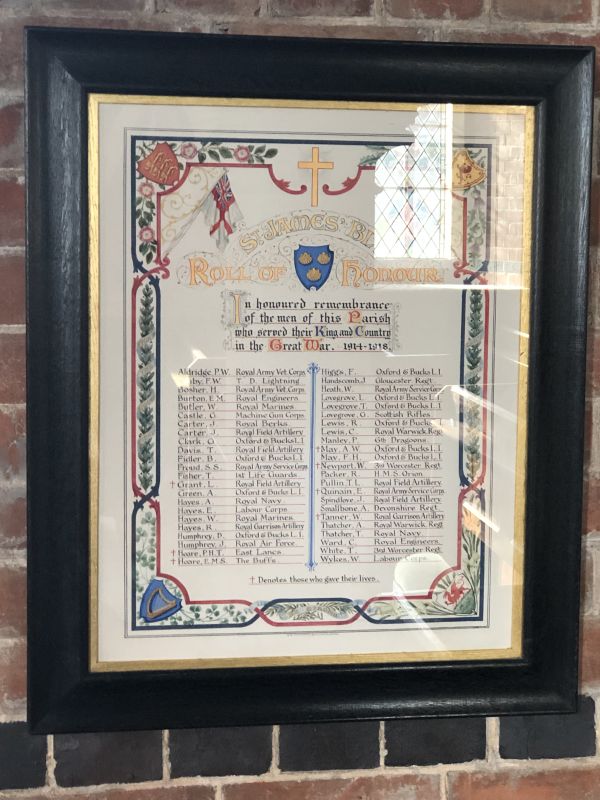 St. JAMES'
ROLL OF HONOUR
In honoured remembrance
of the men of this Parish
who served their King and Country
in the Great War. 1914-1918.
Aldridge, P.W. Royal Army Vet. Corps
F.W. T. D. Lightning
Bosher, H. Royal Army Vet. Corps
Burton, E.M. Royal Engineers
Butler, W. Royal Marines
Castle, G. Machine Gun Corps
Carter, J. Royal Berks
Carter, J. Royal Field Artillery
Clark, G. Oxford & Bucks L.I
Davis, T. Royal Field Artillery
Fidler, B. Oxford & Bucks L.I
Proud, S.S. Royal Army Service Corps
Fisher, T. 1st Life Guards
† Grant, L. Royal Field Artillery
Green, A. Oxford & Bucks L.I
Hayes, A. Royal Navy
Hayes, E. Labour Corps
Hayes, W. Royal Marines
Hayes, R. Royal Garrison Artillery
Humphrey, D. Oxford & Bucks L.I
Humphrey, J. Royal Air Force
† Hoare, P.H.T. East Lancs
† Hoare, E.M.S. The Buffs
Higgs, F. Oxford & Bucks L.I
Handscomb, J Gloucester Regt
Heath, W. Royal Army Service Corps
Lovegrove, L. Oxford & Bucks L.I
Lovegrove, T. Oxford & Bucks L.I
Lovegrove, G. Scottish Rifles
Lewis, R. Oxford & Bucks L.I
Lewis, C. Royal Warwick Regt
Manley, P. 6th Dragoons
† May, A.W. Oxford & Bucks L.I
May, F.H. Oxford & Bucks L.I
† Newport, W. 3rd Worcester Regt
Packer, R. H.M.S. Orion
Pullin, T.L. Royal Field Artillery
† Quinain, E. Royal Army Service Corps
Spindlove, J. Royal Field Artillery
Smallbone, A. Devonshire Regt
† Tanner, W. Royal Garrison Artillery
Thatcher, A. Royal Warwick Regt
Thatcher, T. Royal Navy
Ward, C. Royal Engineers
White, T. 3rd Worcester Regt
Wykes, W. Labour Corps
† Denotes those who gave their lives.